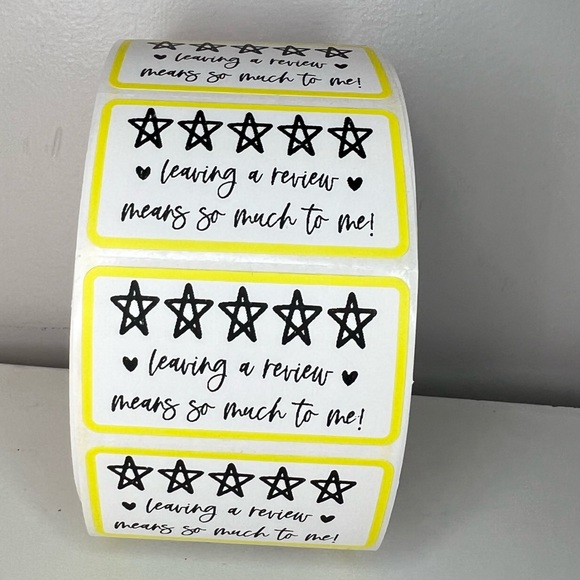 leaving a review
means so much to me!
leaving a review
means so much to me!
leaving a review
means so much to me!
leaving a review
means so much to me!